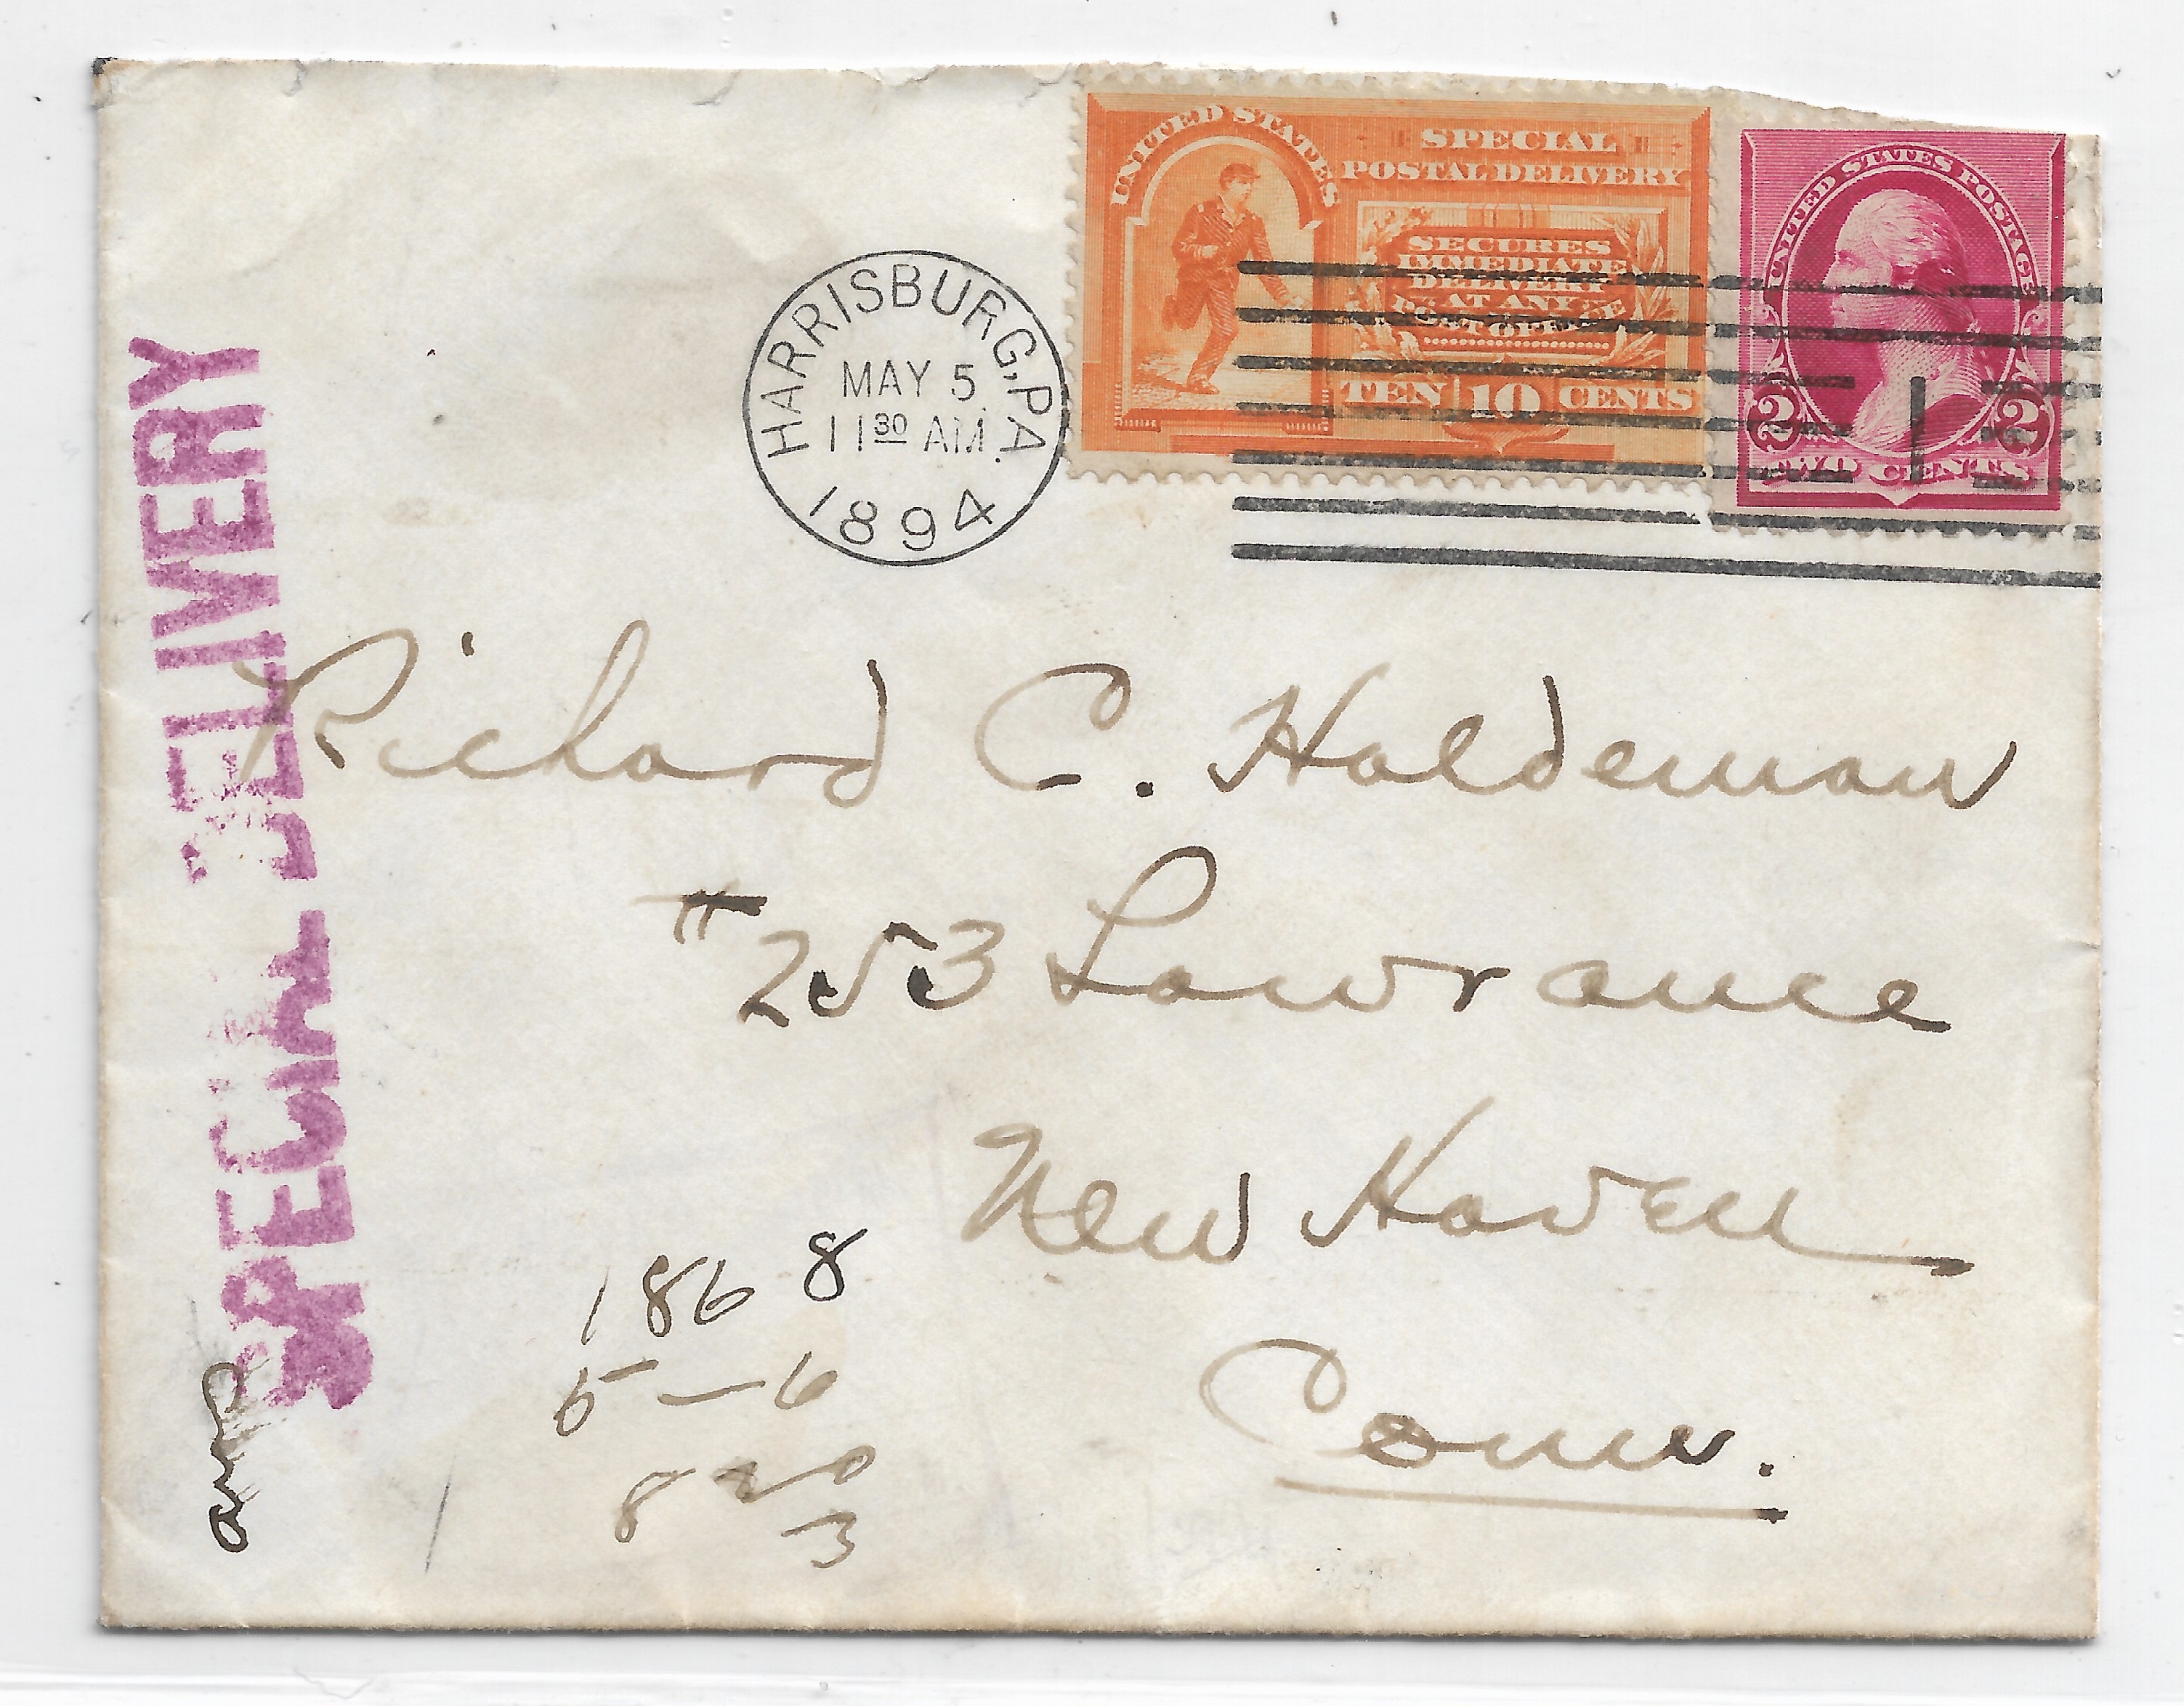 UNITED STATES
SPECIAL
POSTAL DELIVERY
SECURES
IMMEDIATE
DELIVERY
AT ANY
POST OFFICE
TEN 10 CENTS
UNITED STATES POSTAGE
2 2
TWO CENTS
1
HARRISBURG, PA.
MAY 5
11 30 AM.
1894
SPECIAL DELIVERY
Richard C. Haldeman
#253 Lawrance
New Haven
Conn.
1868
5-6
820
3